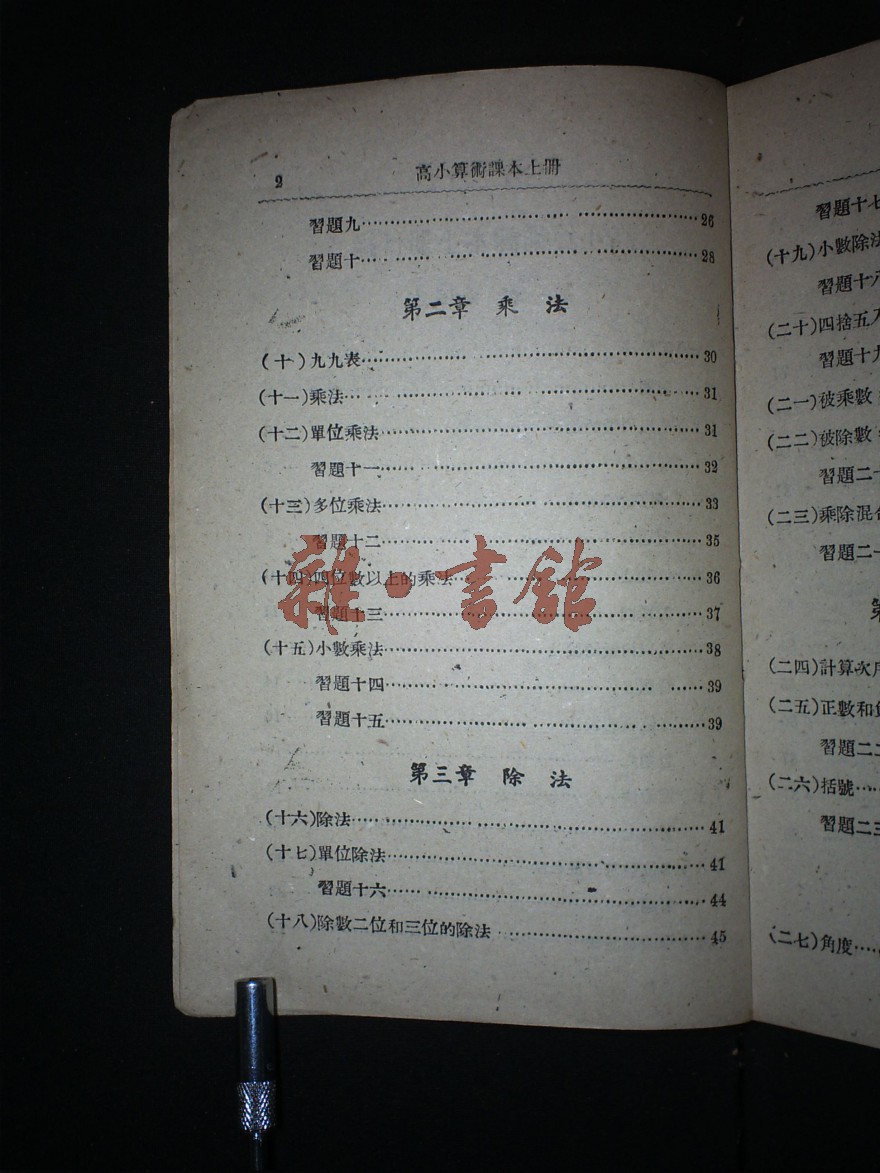 2
高小算術課本上冊
習題九 26
習題十 28
第二章 乘法
(十)九九表 30
(十一)乘法 31
(十二)單位乘法 31
習題十一 32
(十三)多位乘法 33
習題十二 35
(十四)四位數以上的乘法 36
習題十三 37
(十五)小數乘法 38
習題十四 39
習題十五 39
第三章 除法
(十六)除法 41
(十七)單位除法 41
習題十六 44
(十八)除數二位和三位的除法 45
雜·書館
習題十七
(十九)小數除法
習題十八
(二十)四捨五入
習題十九
(二一)被乘數
(二二)被除數
習題二十
(二三)乘除混合
習題二十
第
(二四)計算次序
(二五)正數和負
習題二二
(二六)括號
習題二三
(二七)角度